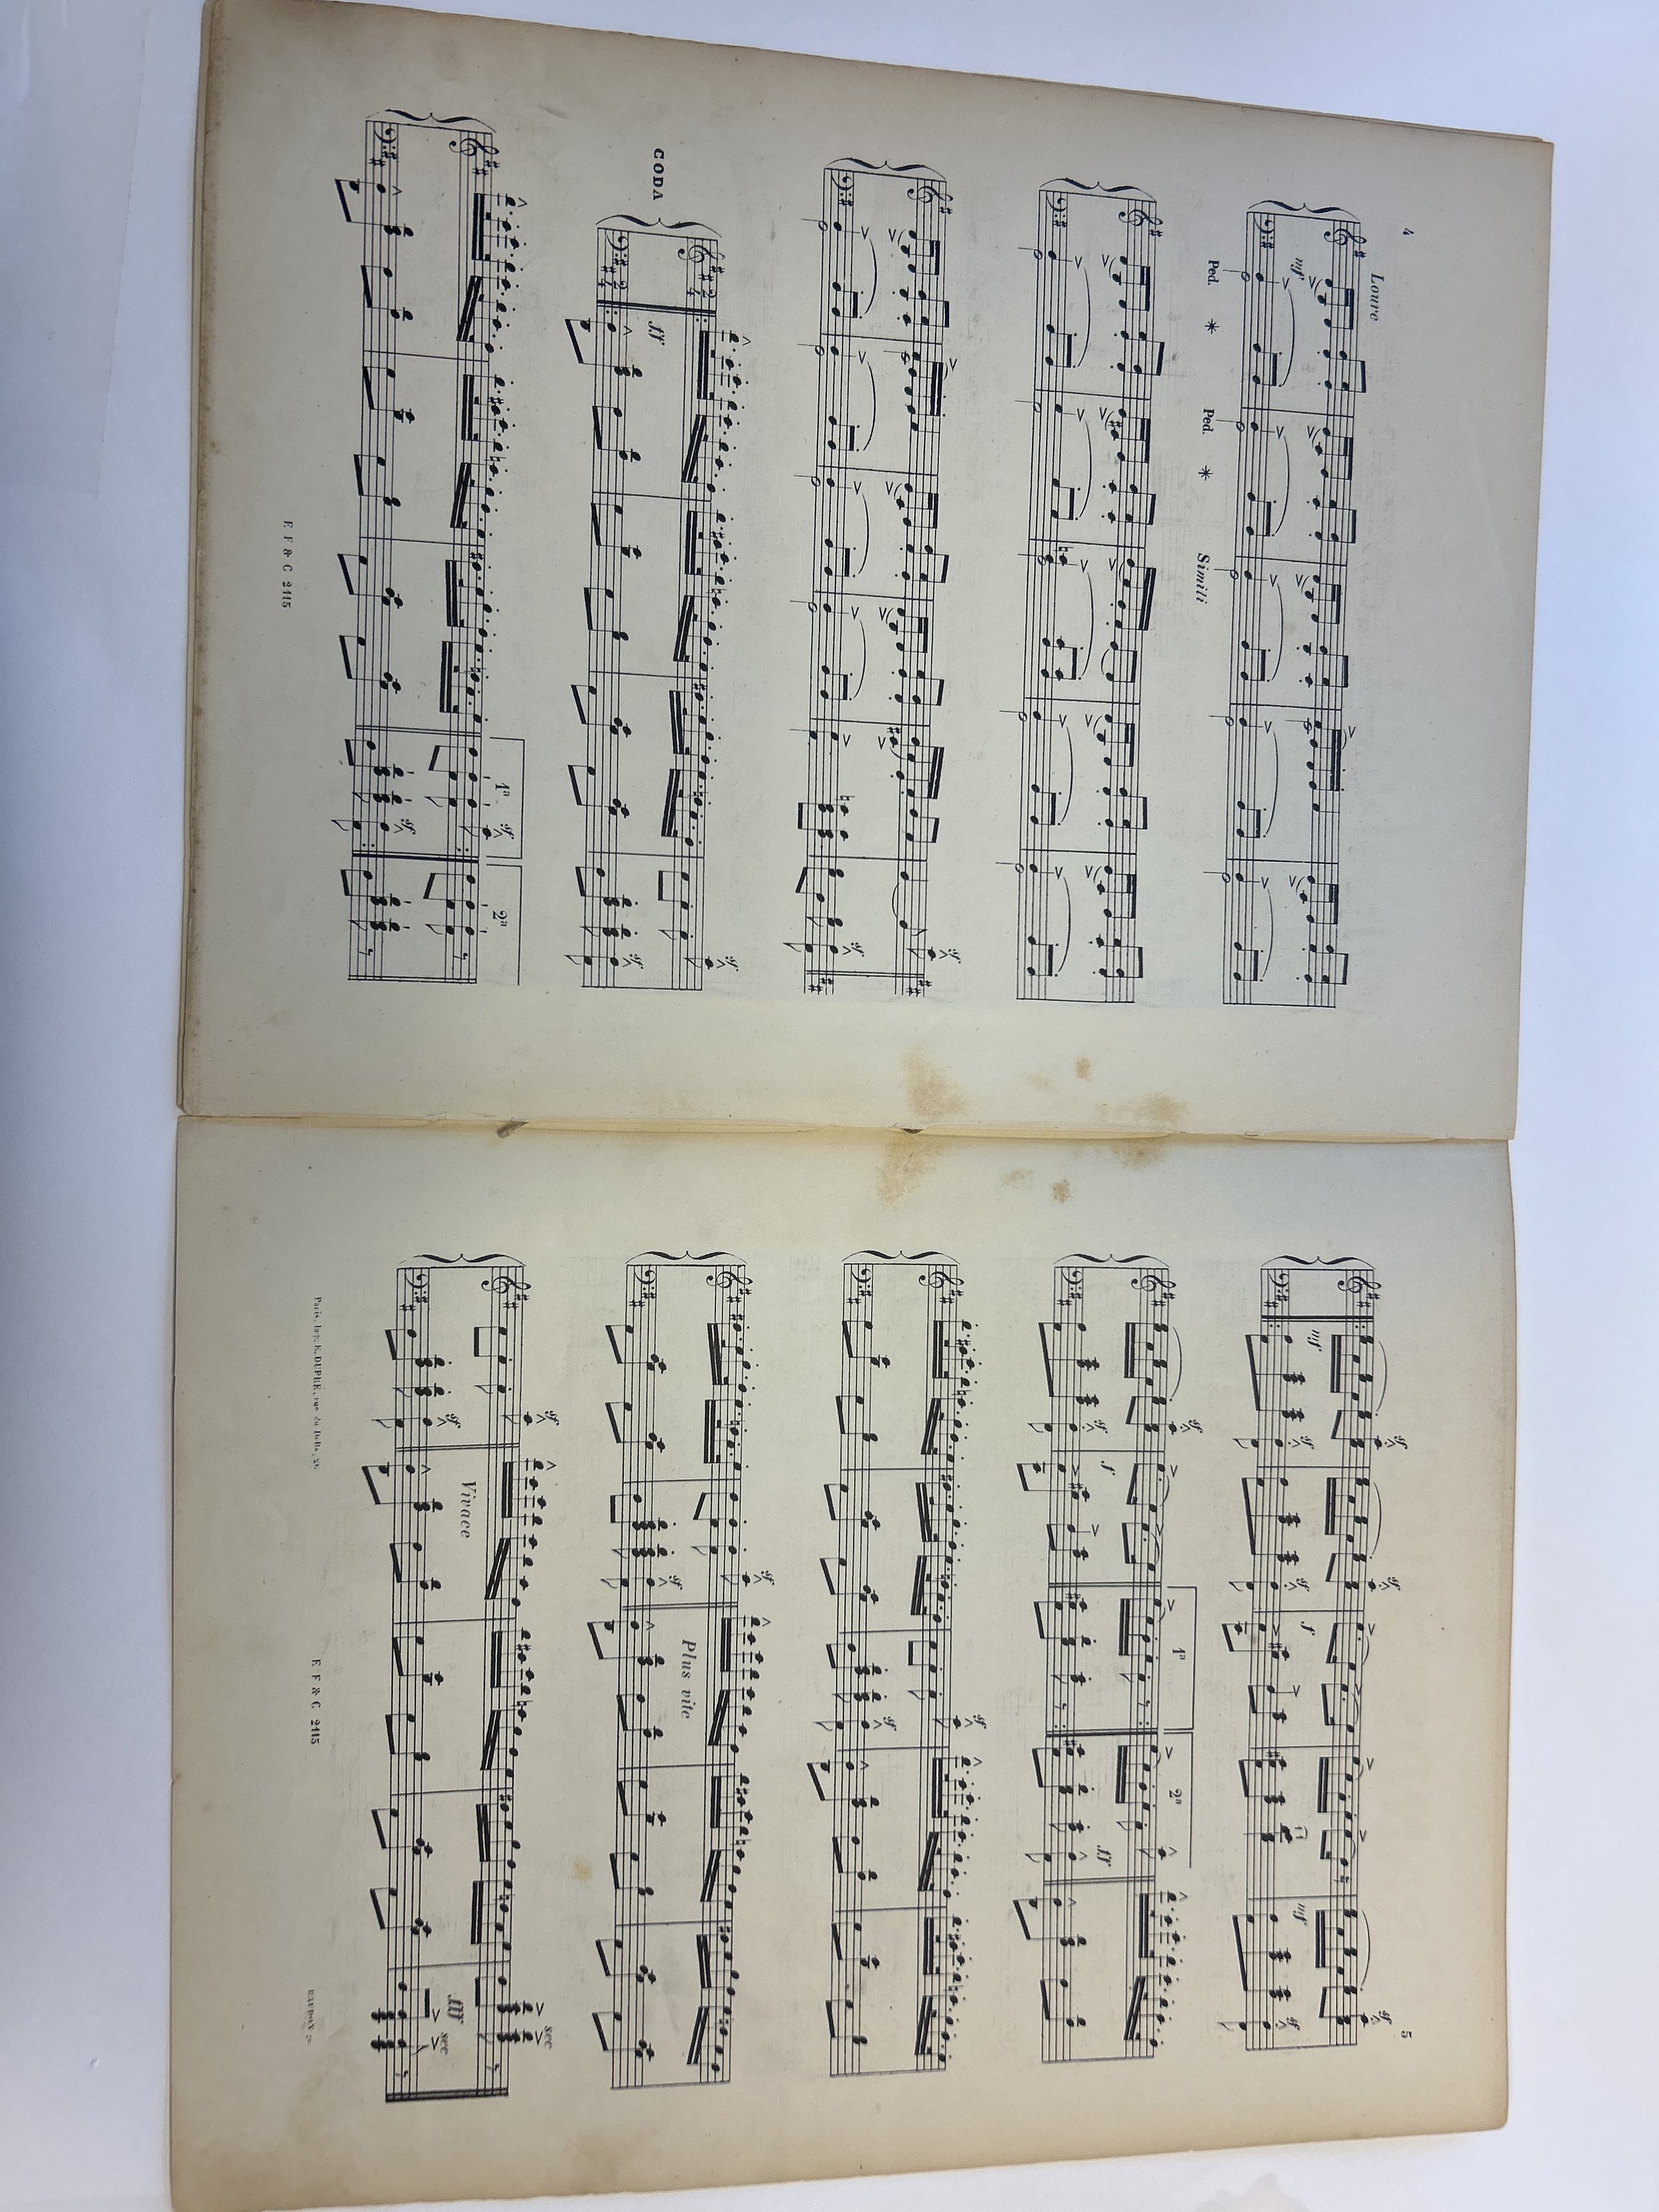 4
Loure
mf
Ped. * Ped. * Simili
sf
sf
CODA
2 2
4 4
ff
sf
sf
1ª 2ª
sf
sf
E F & C 2115
5
mf sf sf f mf sf
sf sf sf
sf 1ª 2ª
sf f ff
sf
sf
sf
Plus vite
sf
sf
Vivace
sf
sec
fff
sec
Paris, Imp. E. DUPRÉ, rue du Delta, 26.
E F & C 2115